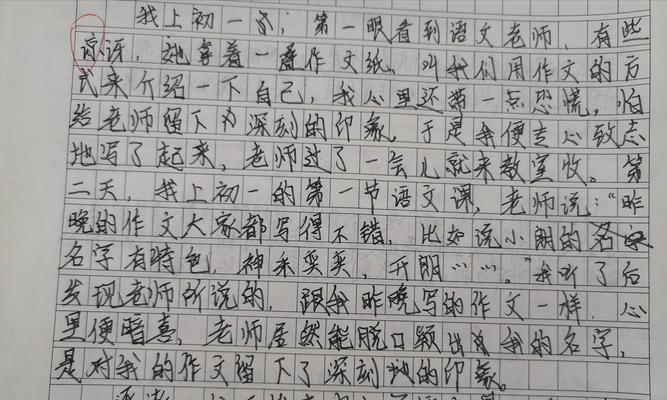 我上初一了，第一眼看到语文老师，有些
惊讶，她拿着一叠作文纸，叫我们用作文的方
式来介绍一下自己，我心里还带一点恐慌，怕
给老师留下为深刻的印象。于是我便专心致志
地写了起来，老师过了一会儿就来教室收。第
二天，我上初一的第一节语文课，老师说："昨
晚的作文大家都写得不错，比如说小明的
名字有特色，神采奕奕，开朗……。"我听了后
发现老师所说的，跟我昨晚写的作文一样，心
里便暗喜，老师居然能脱口颖出我的名字，
是对我的作文留下了深刻的印象。